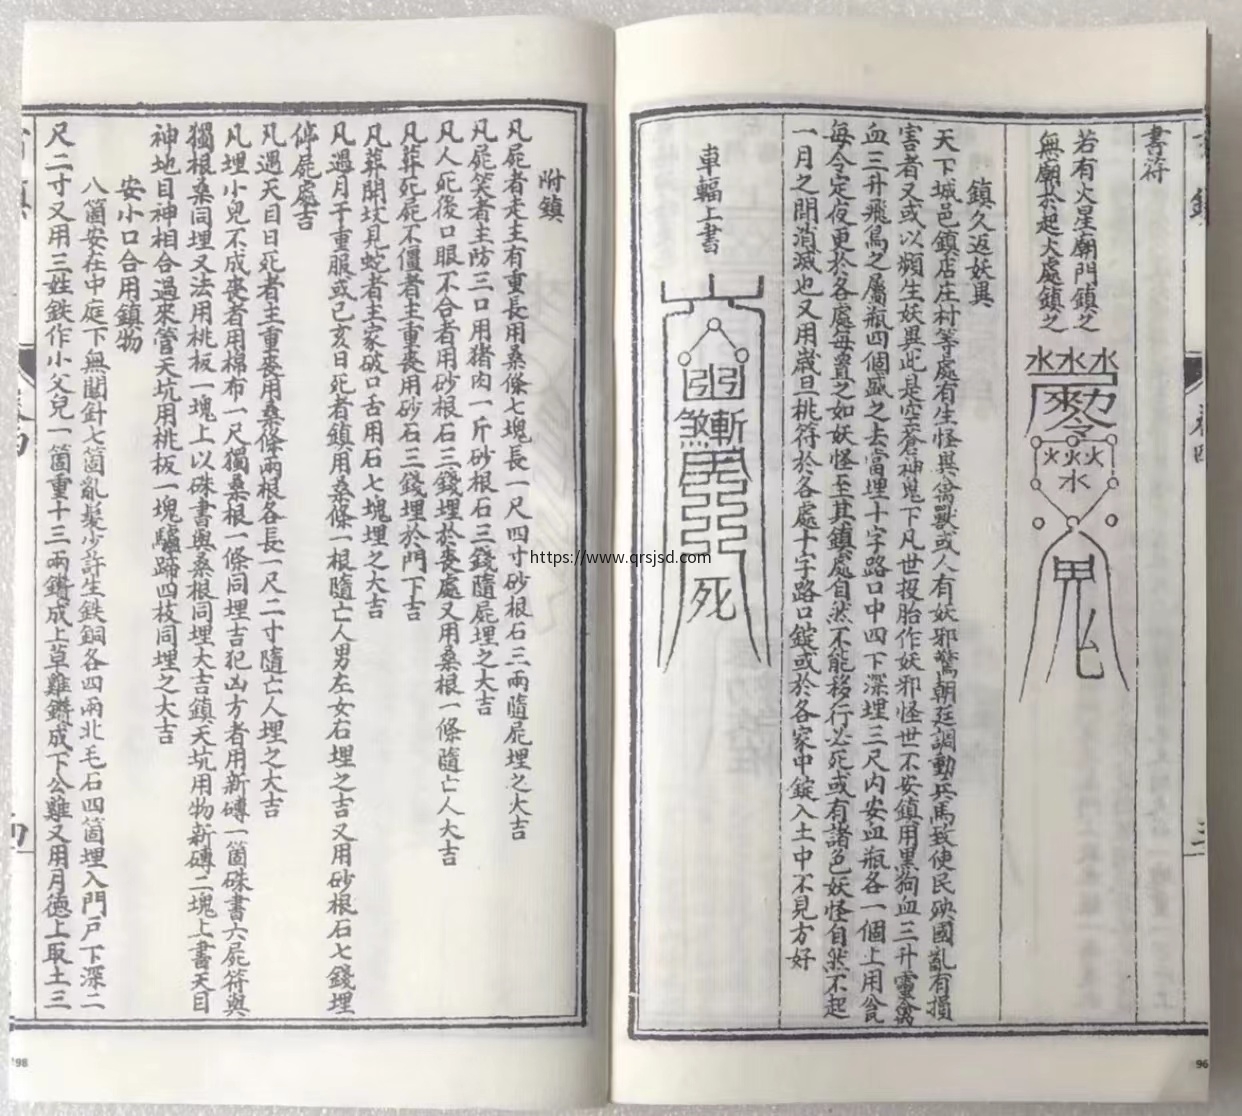 書符
若有火星廟門鎮之
無廟於起火處鎮之
水水水水
鬼
火火火
水
鎮久返妖異
天下城邑鎮店庄村等處有生怪異禽獸或人有妖邪驚朝廷調動兵馬致使民殃國亂有損
害者又或以頻生妖異此是空蒼神鬼下凡世投胎作妖邪怪世不安鎮用黑狗血三升靈禽
血三升飛鳥之屬瓶四個盛之去當埋十字路口中四下深埋三尺內安血瓶各一個上用瓮
每令定夜更於各處每置之如妖怪至其鎮處自然不能移行必死或有諸色妖怪自然不起
一月之間消滅也又用歲旦桃符於各處十字路口錠或於各家中錠入土中不見方好
車輻上書
死
附鎮
凡屍者走主有重長用桑條七塊長一尺四寸砂根石三兩隨屍埋之大吉
凡屍笑者主防三口用猪肉一斤砂根石三錢隨屍埋之大吉
凡人死後口眼不合者用砂根石三錢埋於喪處又用桑根一條隨亡人大吉
凡葬死屍不僵者主重喪用砂石三錢埋於門下吉
凡葬開坟見蛇者主家破口舌用石七塊埋之大吉
凡遇月干重服或己亥日死者鎮用桑條一根隨亡人男左女右埋之吉又用砂根石七錢埋
停屍處吉
凡遇天目日死者主重喪用桑條兩根各長一尺二寸隨亡人埋之大吉
凡埋小兒不成喪者用棉布一尺獨桑根一條同埋吉犯凶方者用新磚一箇硃書六屍符與
獨根桑同埋又法用桃板一塊上以硃書與桑根同埋大吉鎮天坑用物新磚二塊上書天目
神地目神相合過來管天坑用桃板一塊驢蹄四枝同埋之大吉
安小口合用鎮物
八箇安在中庭下無關針七箇亂髮少許生鉄銅各四兩北毛石四箇埋入門戶下深二
尺二寸又用三姓鉄作小父兒一箇重十三兩鑽成上草雞鑽成下公雞又用月德上取土三
卷四
三
四
https://www.qrsjsd.com
198
96